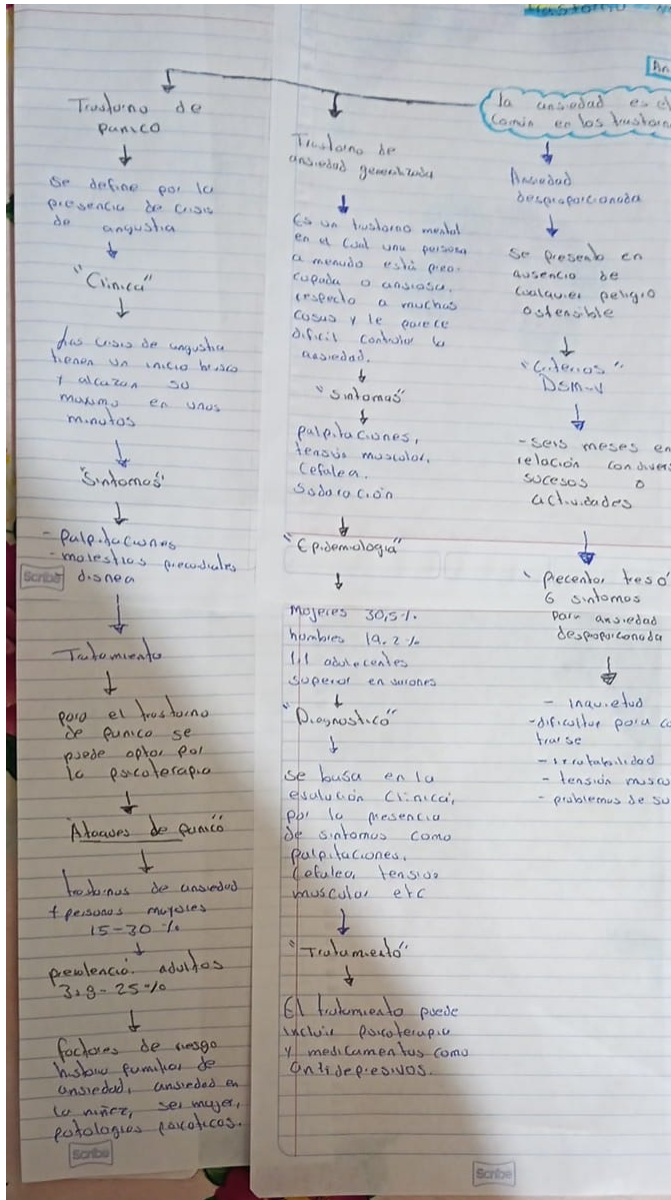 Trastorno de
panico
se define por la
presencia de crisis
de angustia
"Clinica"
Las crisis de angustia
tienen un inicio brusco
y alcanzan su
maximo en unos
minutos
"Sintomas"
- palpitaciones
- molestias precordiales
disnea
Tratamiento
para el trastorno
de panico se
puede optar por
la psicoterapia
"Ataques de panico"
trastornos de ansiedad
+ personas mayores
15-30 %
prevalencia adultos
3.8-25%
factores de riesgo
historia familiar de
ansiedad, ansiedad en
la niñez, ser mujer,
patologias psicoticas.
Scribe
Scribe
Trastorno de
ansiedad generalizada
Es un trastorno mental
en el cual una persona
a menudo está preo-
cupada o ansiosa
respecto a muchas
cosas y le parece
dificil controlar la
ansiedad.
"Sintomas"
palpitaciones,
tensión muscular,
Cefalea.
Sudoración
"Epidemiologia"
Mujeres 30,5%
hombres 19.2%
adolecentes
"Diagnostico"
se busa en la
evalución Clinica,
por la presencia
de sintomas como
palpitaciones,
Cefalea, tensión
muscular etc
"Tratamiento"
El tratamiento puede
incluir Psicoterapia
y medicamentos como
antidepresivos.
Scribe
la ansiedad es el
común en los trastorn
Ansiedad
desproporcionada
Se presenta en
ausencia de
cualquier peligro
ostensible
"Criterios"
DSM-V
- seis meses en
relación con divers
sucesos o
actividades
6 sintomas
para ansiedad
desproporcionada
- inquietud
- dificultar para co
trarse
- irritabilidad
- tensión musc
- problemas de su